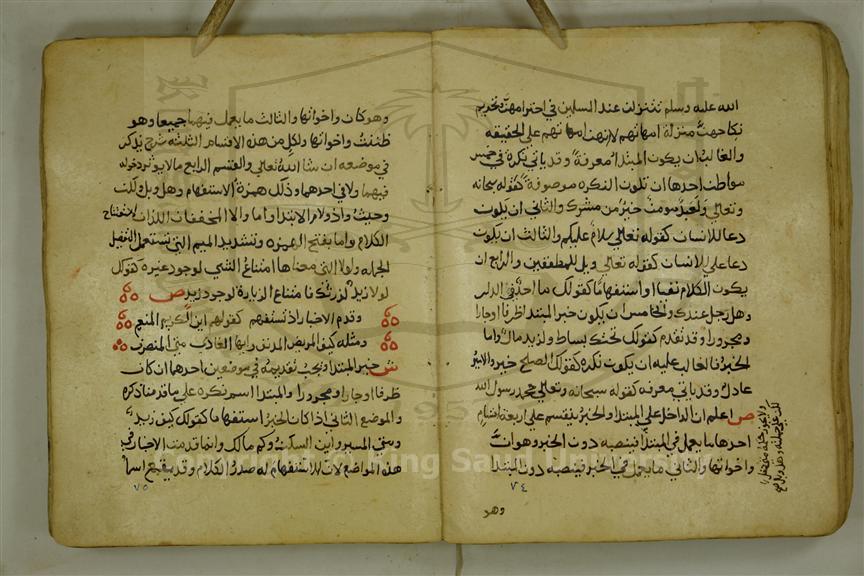 الله عليه وسلم تتنزلن عند المسلمين في احترامهن وتحريم
نكاحهن منزلة امهاتهم لا انهن امهاتهم على الحقيقه
والغالب ان يكون المبتدا معرفة وقد ياتي نكرة في خمس
مواطن احدها ان تكون النكره موصوفة كقوله سبحانه
وتعالي ولعبد مومن خير من مشرك والثاني ان يكون
دعا للانسان كقوله تعالي سلام عليكم والثالث ان يكون
دعا علي الانسان كقوله تعالي ويل للمطففين والرابع ان
يكون الكلام نفيا او استفهاما كقولك ما احد في الدار
وهل رجل عندك والخامس ان يكون خبر المبتدا ظرفا او جارا
ومجرورا وقد تقدم كقولك تحتك بساط ولزيد مال واما
الخبر فالغالب عليه ان يكون نكره كقولك الصلح خير والامير
عادل وقد ياتي معرفه كقوله سبحانه وتعالي محمد رسول الله
ص اعلم ان الداخل علي المبتدا والخبر ينقسم علي اربعة اقسام
احدها ما يعمل في المبتدا فينصبه دون الخبر وهو ان
واخواتها والثاني ما يعمل في الخبر فينصبه دون المبتدا
٧٤
وهو
وهو كان واخواتها والثالث ما يعمل فيهما جميعا وهو
ظننت واخواتها ولكل من هذه الاقسام الثلثه شرح يذكر
في موضعه ان شا الله تعالي والقسم الرابع مالا يوثر دخوله
فيهما ولا في احدهما وذلك همزة الاستفهام وهل وبل ولكن
وحيث واذ ولام الابتدا واما والا المخففات اللذان لافتتاح
الكلام واما بفتح الهمزه وتشديد الميم التي تستعمل لتفصيل
الجمله ولولا التي معناها امتناع الشي لوجود غيره كقولك
لولا زيد لزرتك فامتناع الزيارة لوجود زيد ص
وقدم الاخبار اذ تستفهم كقولهم اين الكريم المنعم
ومثله كيف المريض المدنف وايها الغادي متي المنصرف
ش خبر المبتدا يجب تقديمه في موضعين احدهما ان كان
ظرفا او جارا ومجرورا والمبتدا اسم نكره علي ما قدمنا ذكره
والموضع الثاني اذا كان الخبر استفهاما كقولك كيف زيد
ومتي المسير واين السكن وكم مالك وانما قدمت الاخبار في
هذه المواضع لان للاستفهام له صدر الكلام وقد يقع اسما
٧٥